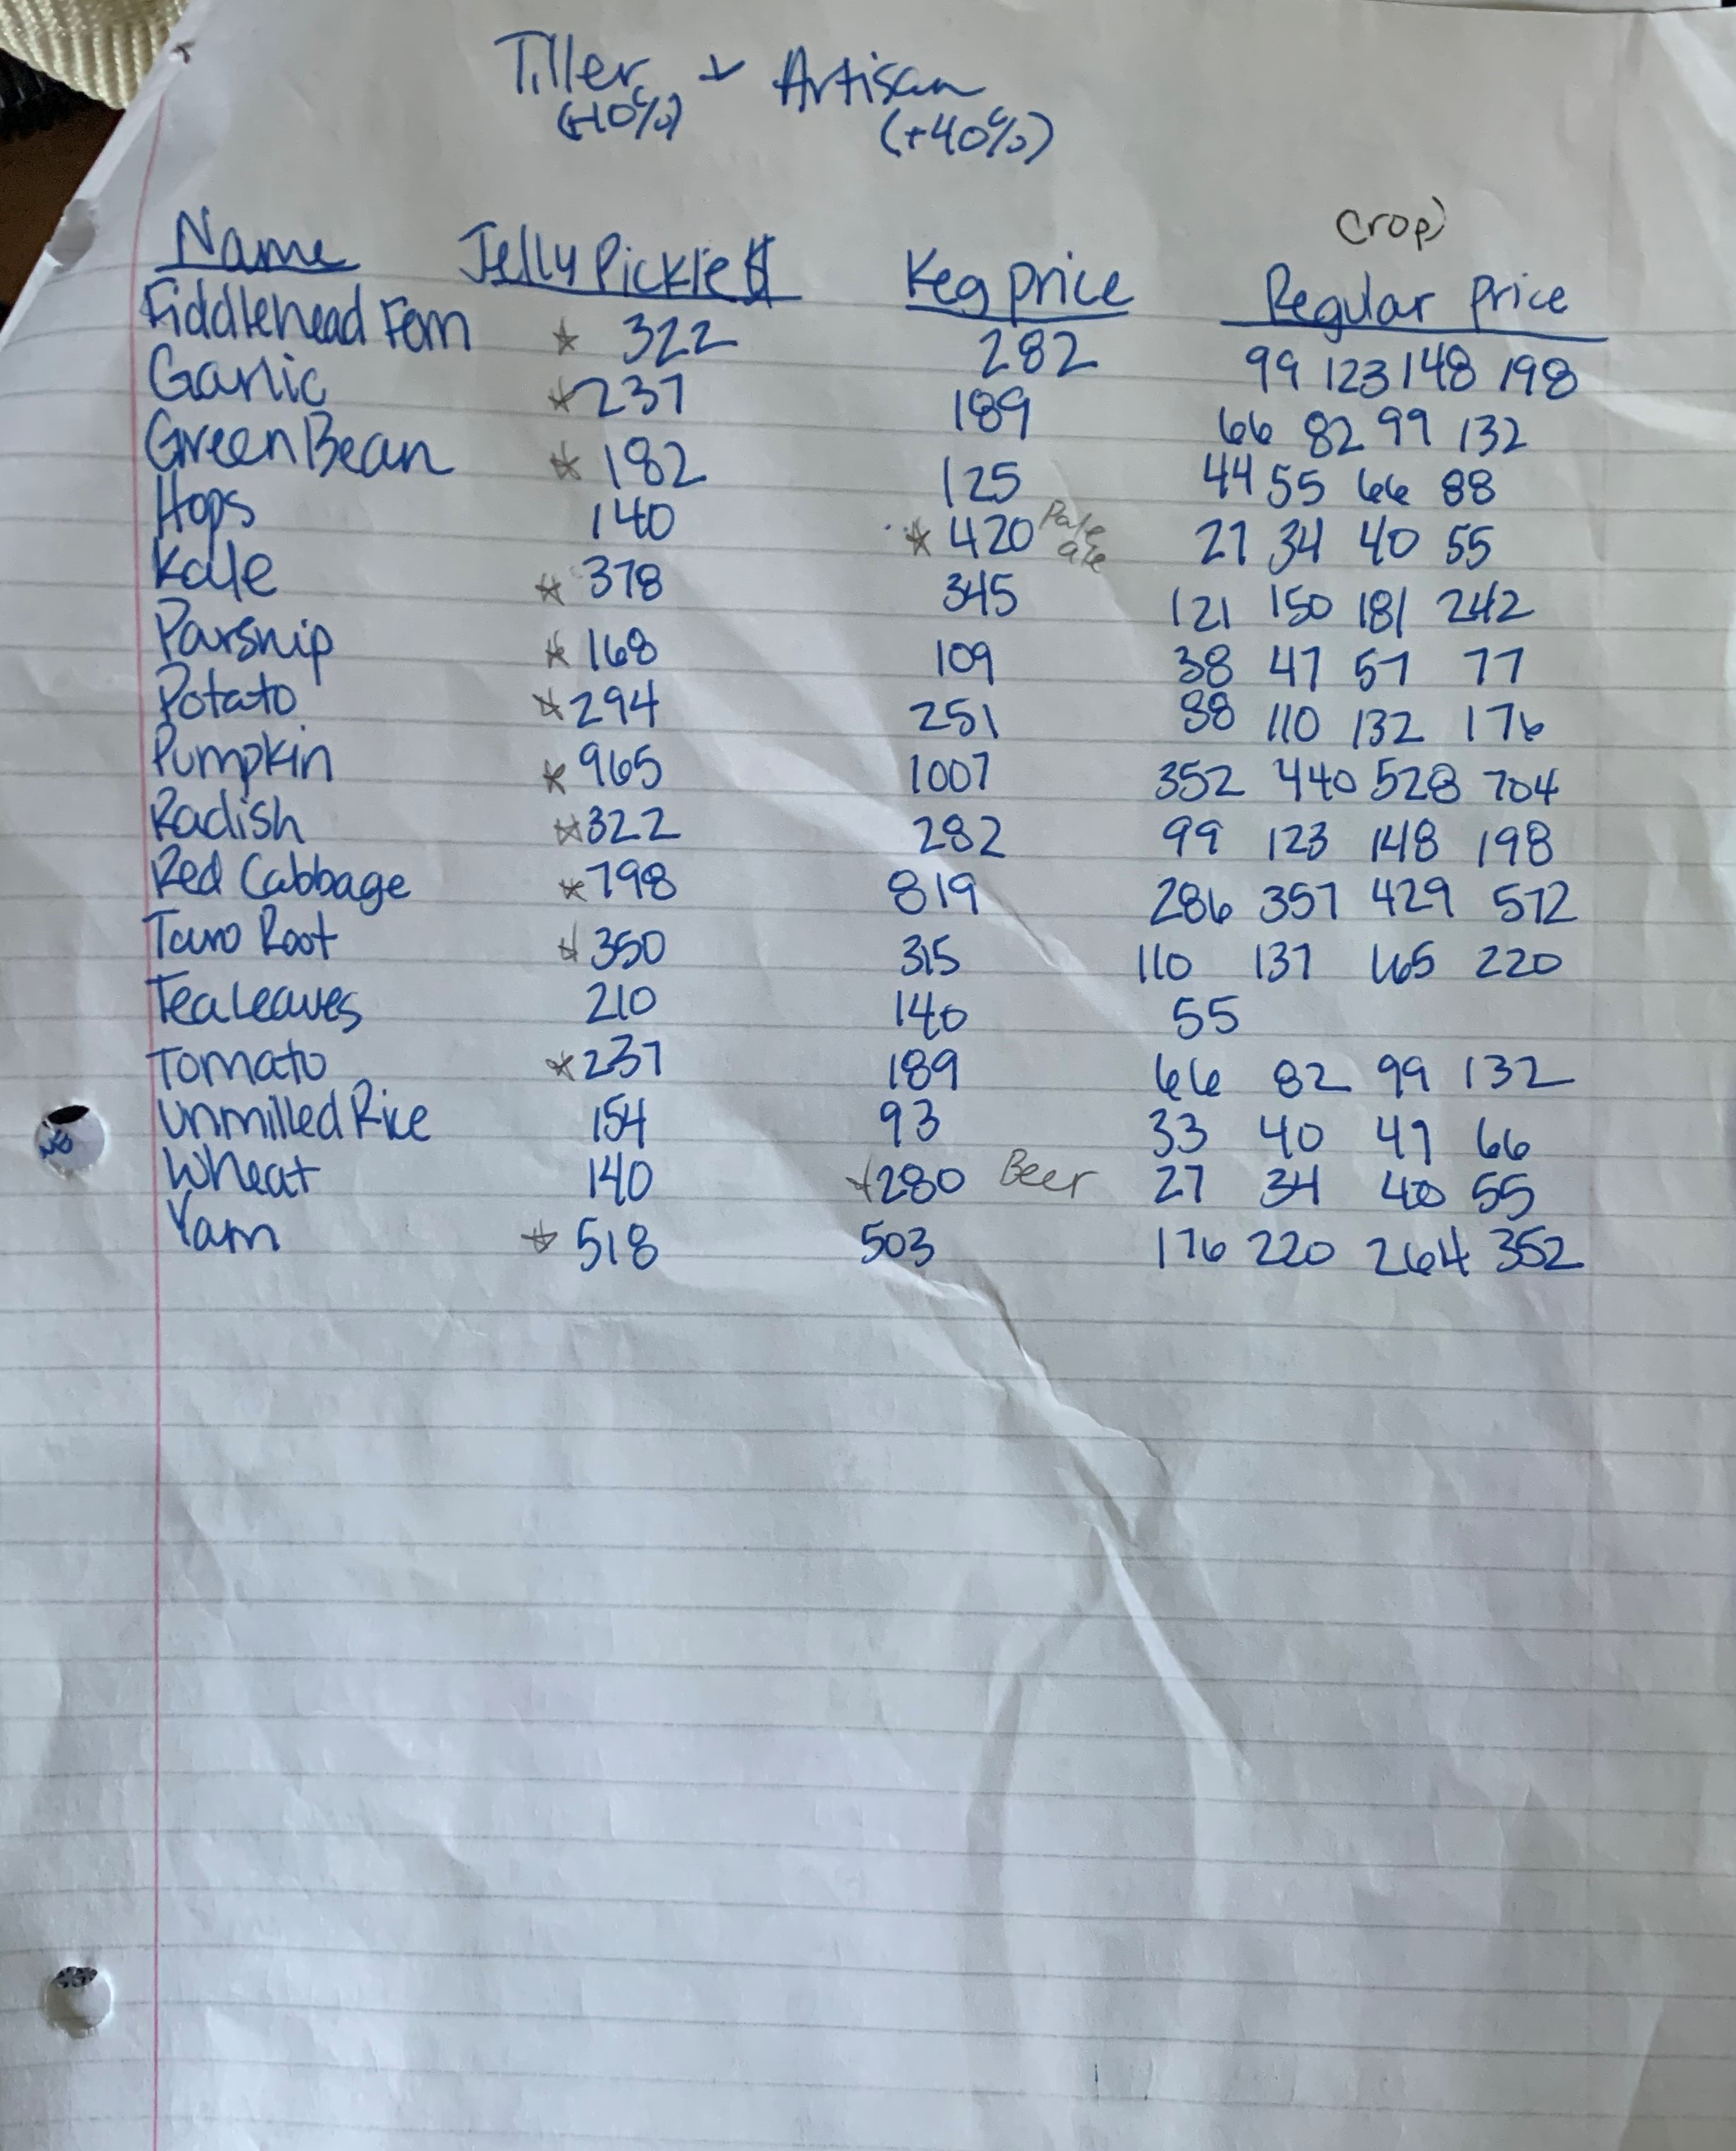 Tiller + Artisan
(+10%) (+40%)
Crop
Name Jelly Pickle $ Keg price Regular Price
Fiddlehead Fern ☆ 322 282 99 123 148 198
Garlic ☆ 237 189 66 82 99 132
Green Bean ☆ 182 125 44 55 66 88
Hops 140 ☆ 420 Pale ale 27 34 40 55
Kale ☆ 378 345 121 150 181 242
Parsnip ☆ 168 109 38 47 57 77
Potato ☆ 294 251 88 110 132 176
Pumpkin ☆ 965 1007 352 440 528 704
Radish ☆ 322 282 99 123 148 198
Red Cabbage ☆ 798 819 286 357 429 572
Taro Root ☆ 350 315 110 137 165 220
Tea Leaves 210 140 55
Tomato ☆ 237 189 66 82 99 132
Unmilled Rice 154 93 33 40 49 66
Wheat 140 ☆ 280 Beer 27 34 40 55
Yam ☆ 518 503 176 220 264 352